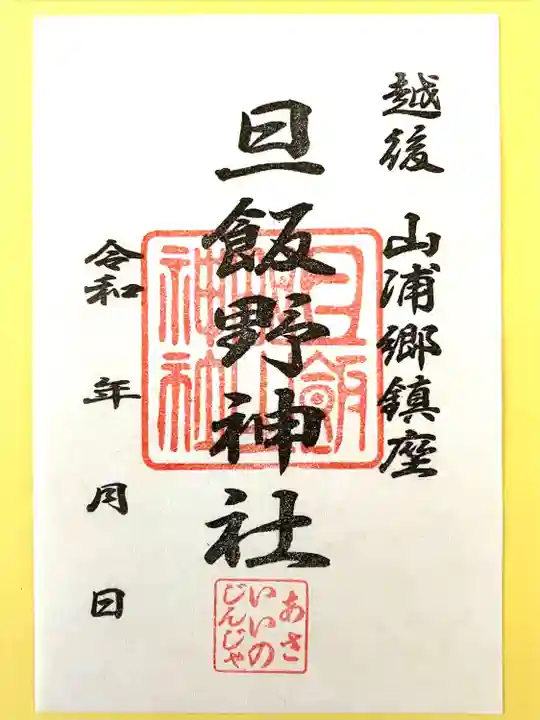 越後 山浦郷鎮座
旦飯野神社
令和 年 月 日
あさ
いいの
じんじゃ